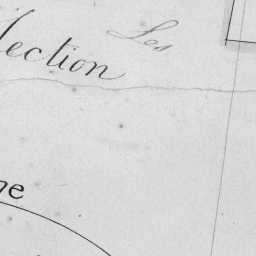 Les
lection
ne